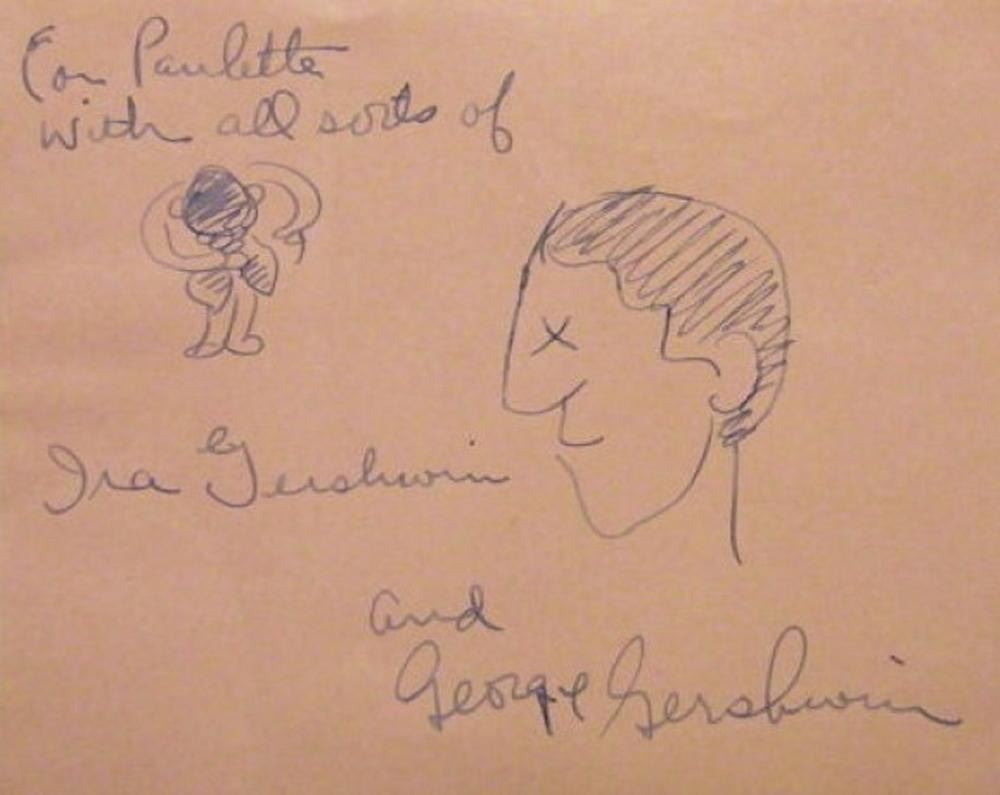 For Paulette
with all sorts of
Ira Gershwin
and
George Gershwin